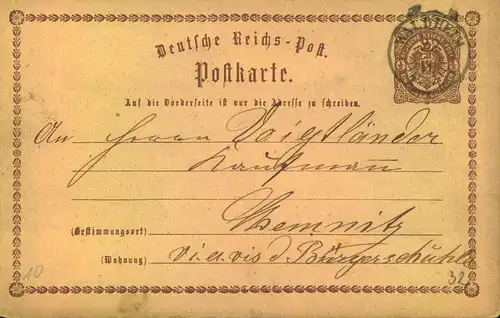 Deutsche Reichs-Post.
Postkarte.
Auf die Vorderseite ist nur die Adresse zu schreiben.
WALDHEIM
An Herrn Voigtländer
Kaufmann
(Bestimmungsort) Chemnitz
(Wohnung) vis a vis d Bürgerschuhle
10
32